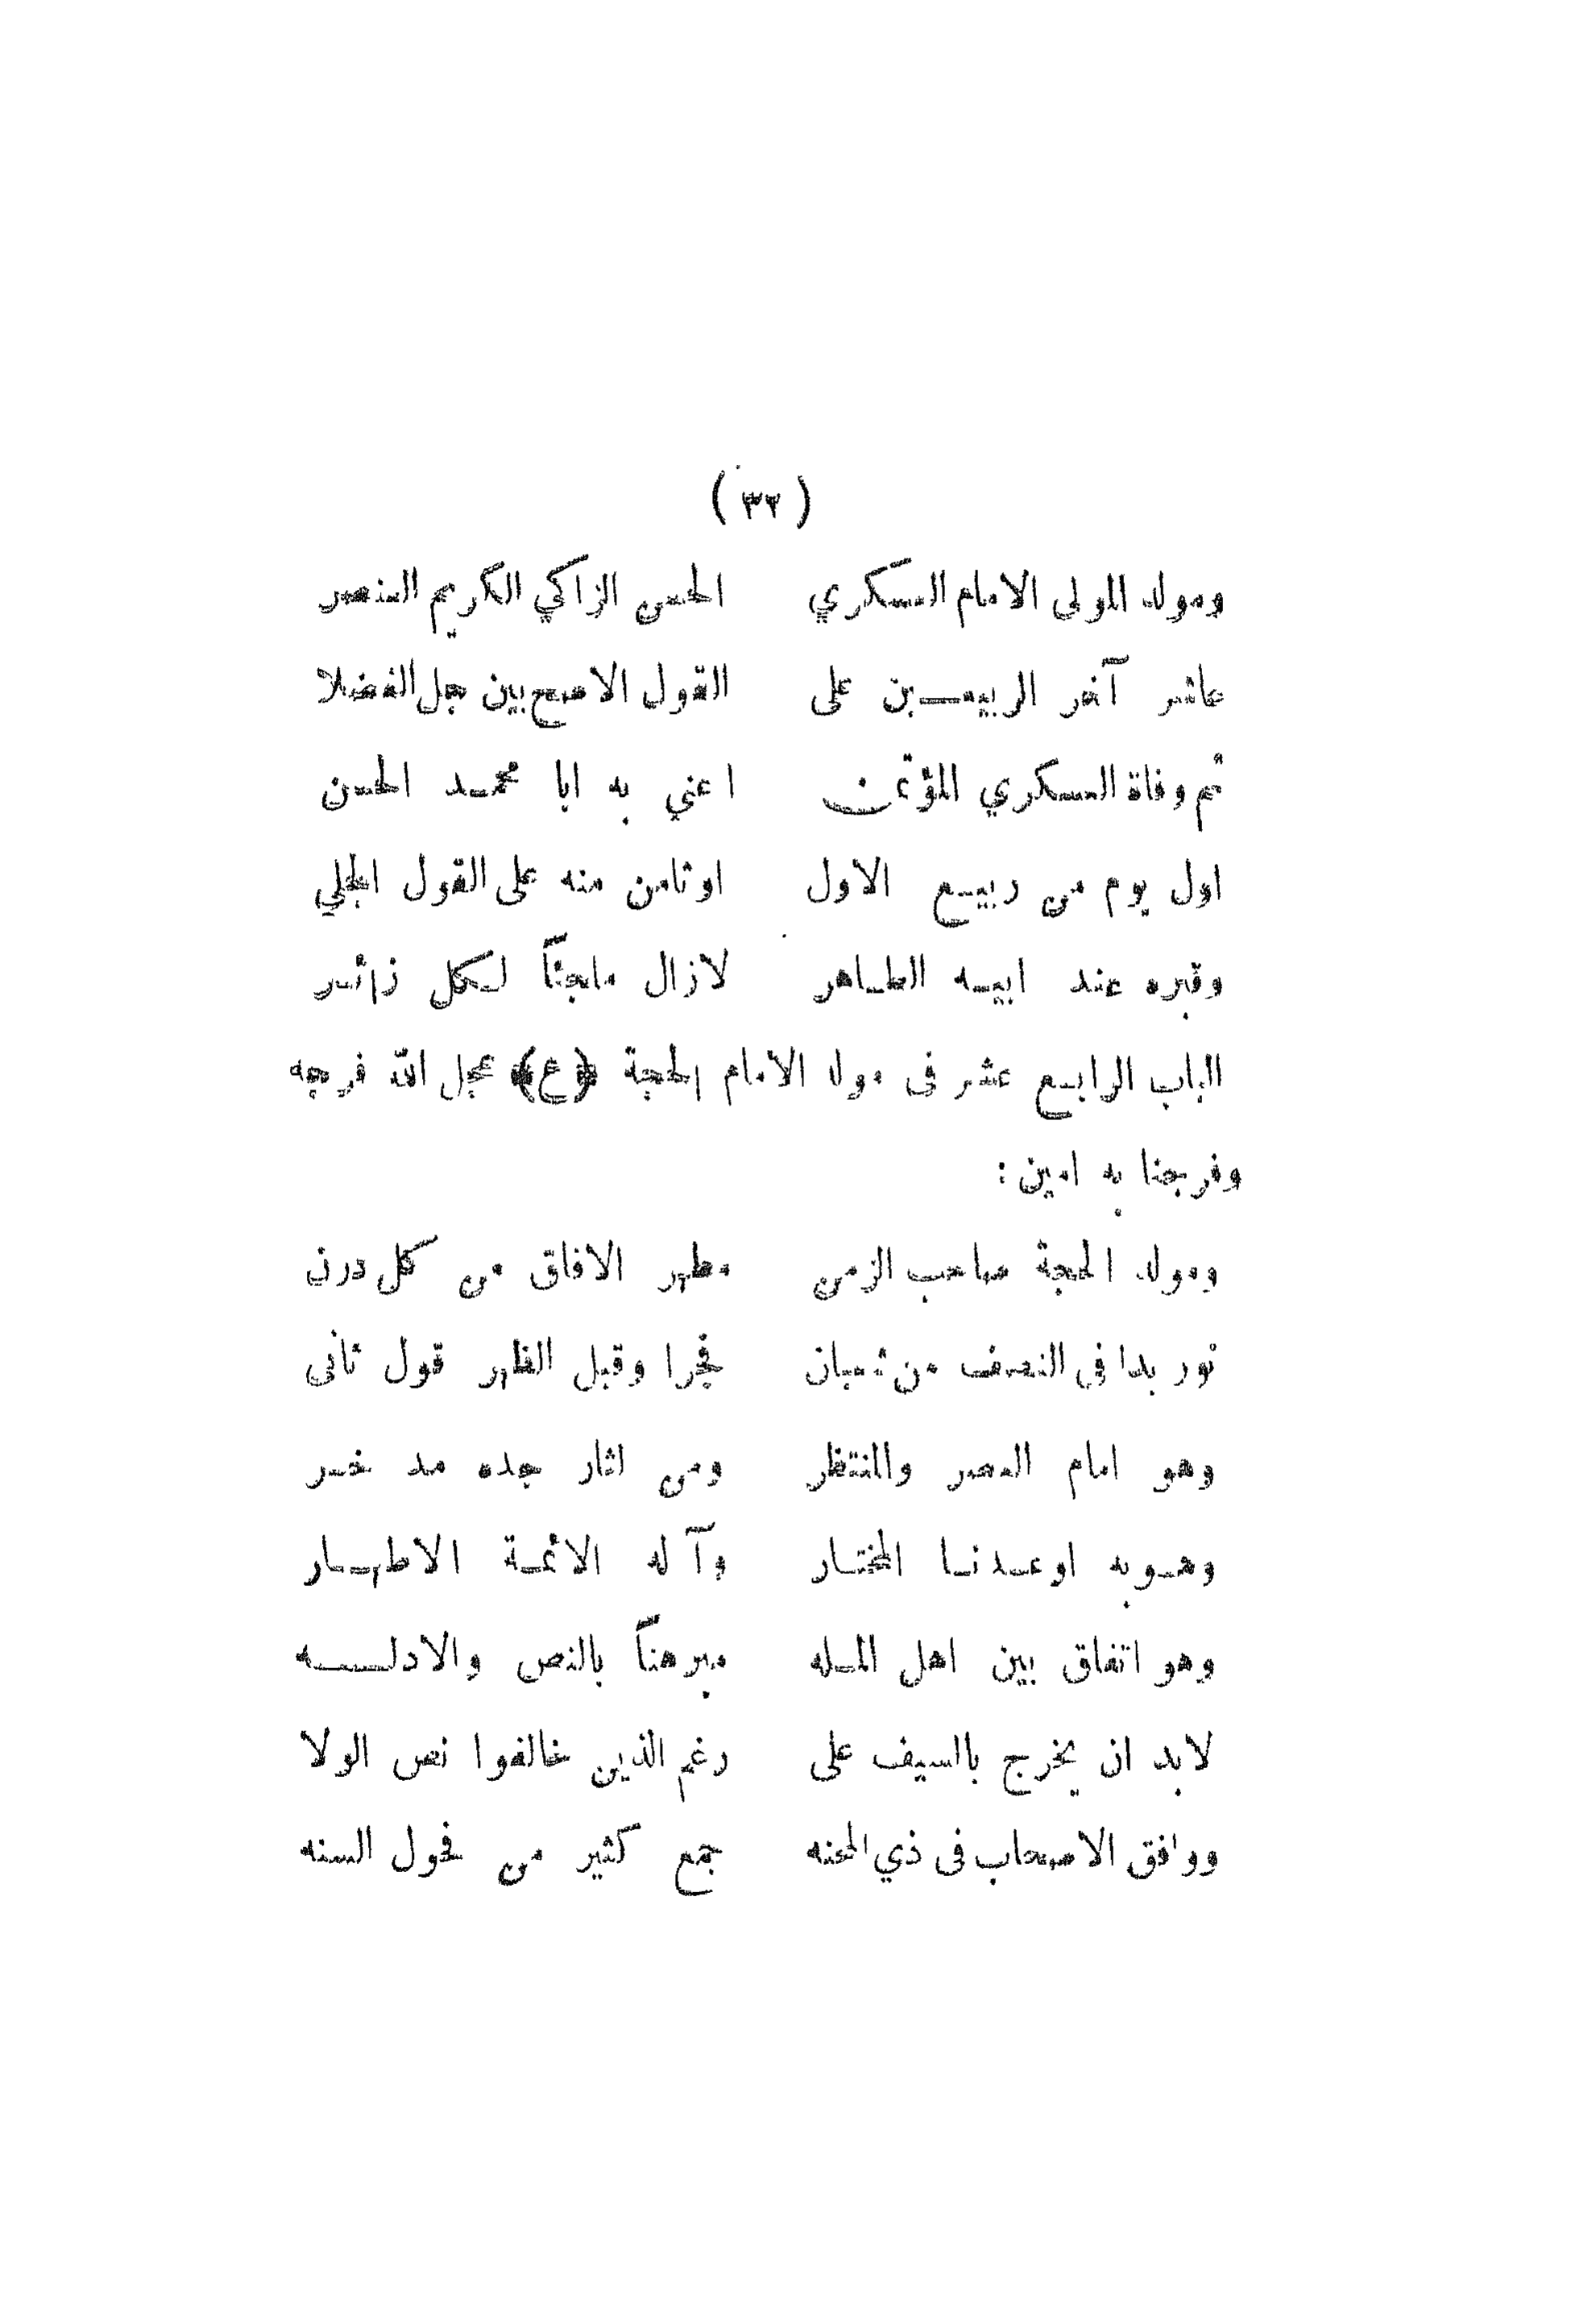 ( ٣٢ )
ومولد المولى الامام العسكري الحسن الزاكي الكريم العنصر
عاشر آخر الربيعين على القول الاصح بين جل الفضلا
ثم وفاة العسكري المؤتمن اعني به ابا محمد الحسن
اول يوم من ربيع الاول اوثامن منه على القول الجلي
وقبره عند ابيه الطاهر لازال ملجئاً لكل زائر
الباب الرابع عشر فى مولد الامام الحجة ﴿ع﴾ عجل الله فرجه
وفرجنا به امين :
ومولد الحجة صاحب الزمن مطهر الافاق من كل درن
نور بدا في النصف من شعبان فجرا وقبل الظهر قول ثانى
وهو امام العصر والمنتظر ومن اثار جده مد خر
وهو به اوعدنا المختار وآله الائمة الاطهار
وهو اتفاق بين اهل المله مبرهناً بالنص والادله
لابد ان يخرج بالسيف على رغم الذين خالفوا نص الولا
ووافق الاصحاب فى ذي المحنه جمع كثير من فحول السنه